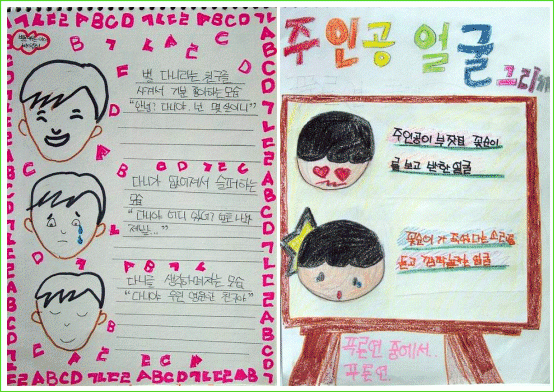 ABCD ㄱㄴㄷㄹ ABCD ㄱㄴㄷㄹ ABCD ㄱㄴ
별 다니라는 친구를
사겨서 기분 좋아하는 모습
"안녕? 다니야. 넌 몇 살이니"
다니가 없어져서 슬퍼하는
모습
"다니야 어디 있니? 빨리 나와
제발..."
다니를 생각하며 자는 모습
"다니야 우린 영원한 친구야"
ABCD ㄱㄴㄷㄹ ABCD ㄱㄴㄷㄹ ABCD
주인공 얼굴
그리기
주인공이 부잣집 꽃순이
를 보고 반한 얼굴
꽃순이가 죽었다는 소리를
듣고 깜짝 놀라는 얼굴
푸른연 중에서..
푸른연